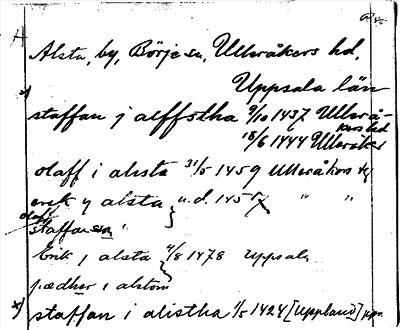 Alsta, by, Börje sn, Ulleråkers hd,
Uppsala län
x) staffan j aeffstha 9/10 1437 Ullerå-
kers hd
18/6 1444 Ulleråker
olaff i alista 31/5 1459 Ulleråkers
erik y alsta } u.d. 145
olaff
staffansson
Erik j alsta } 4/8 1478 Uppsala
pædher i alstom
x) staffan i alistha 1/5 1424 [Uppland]